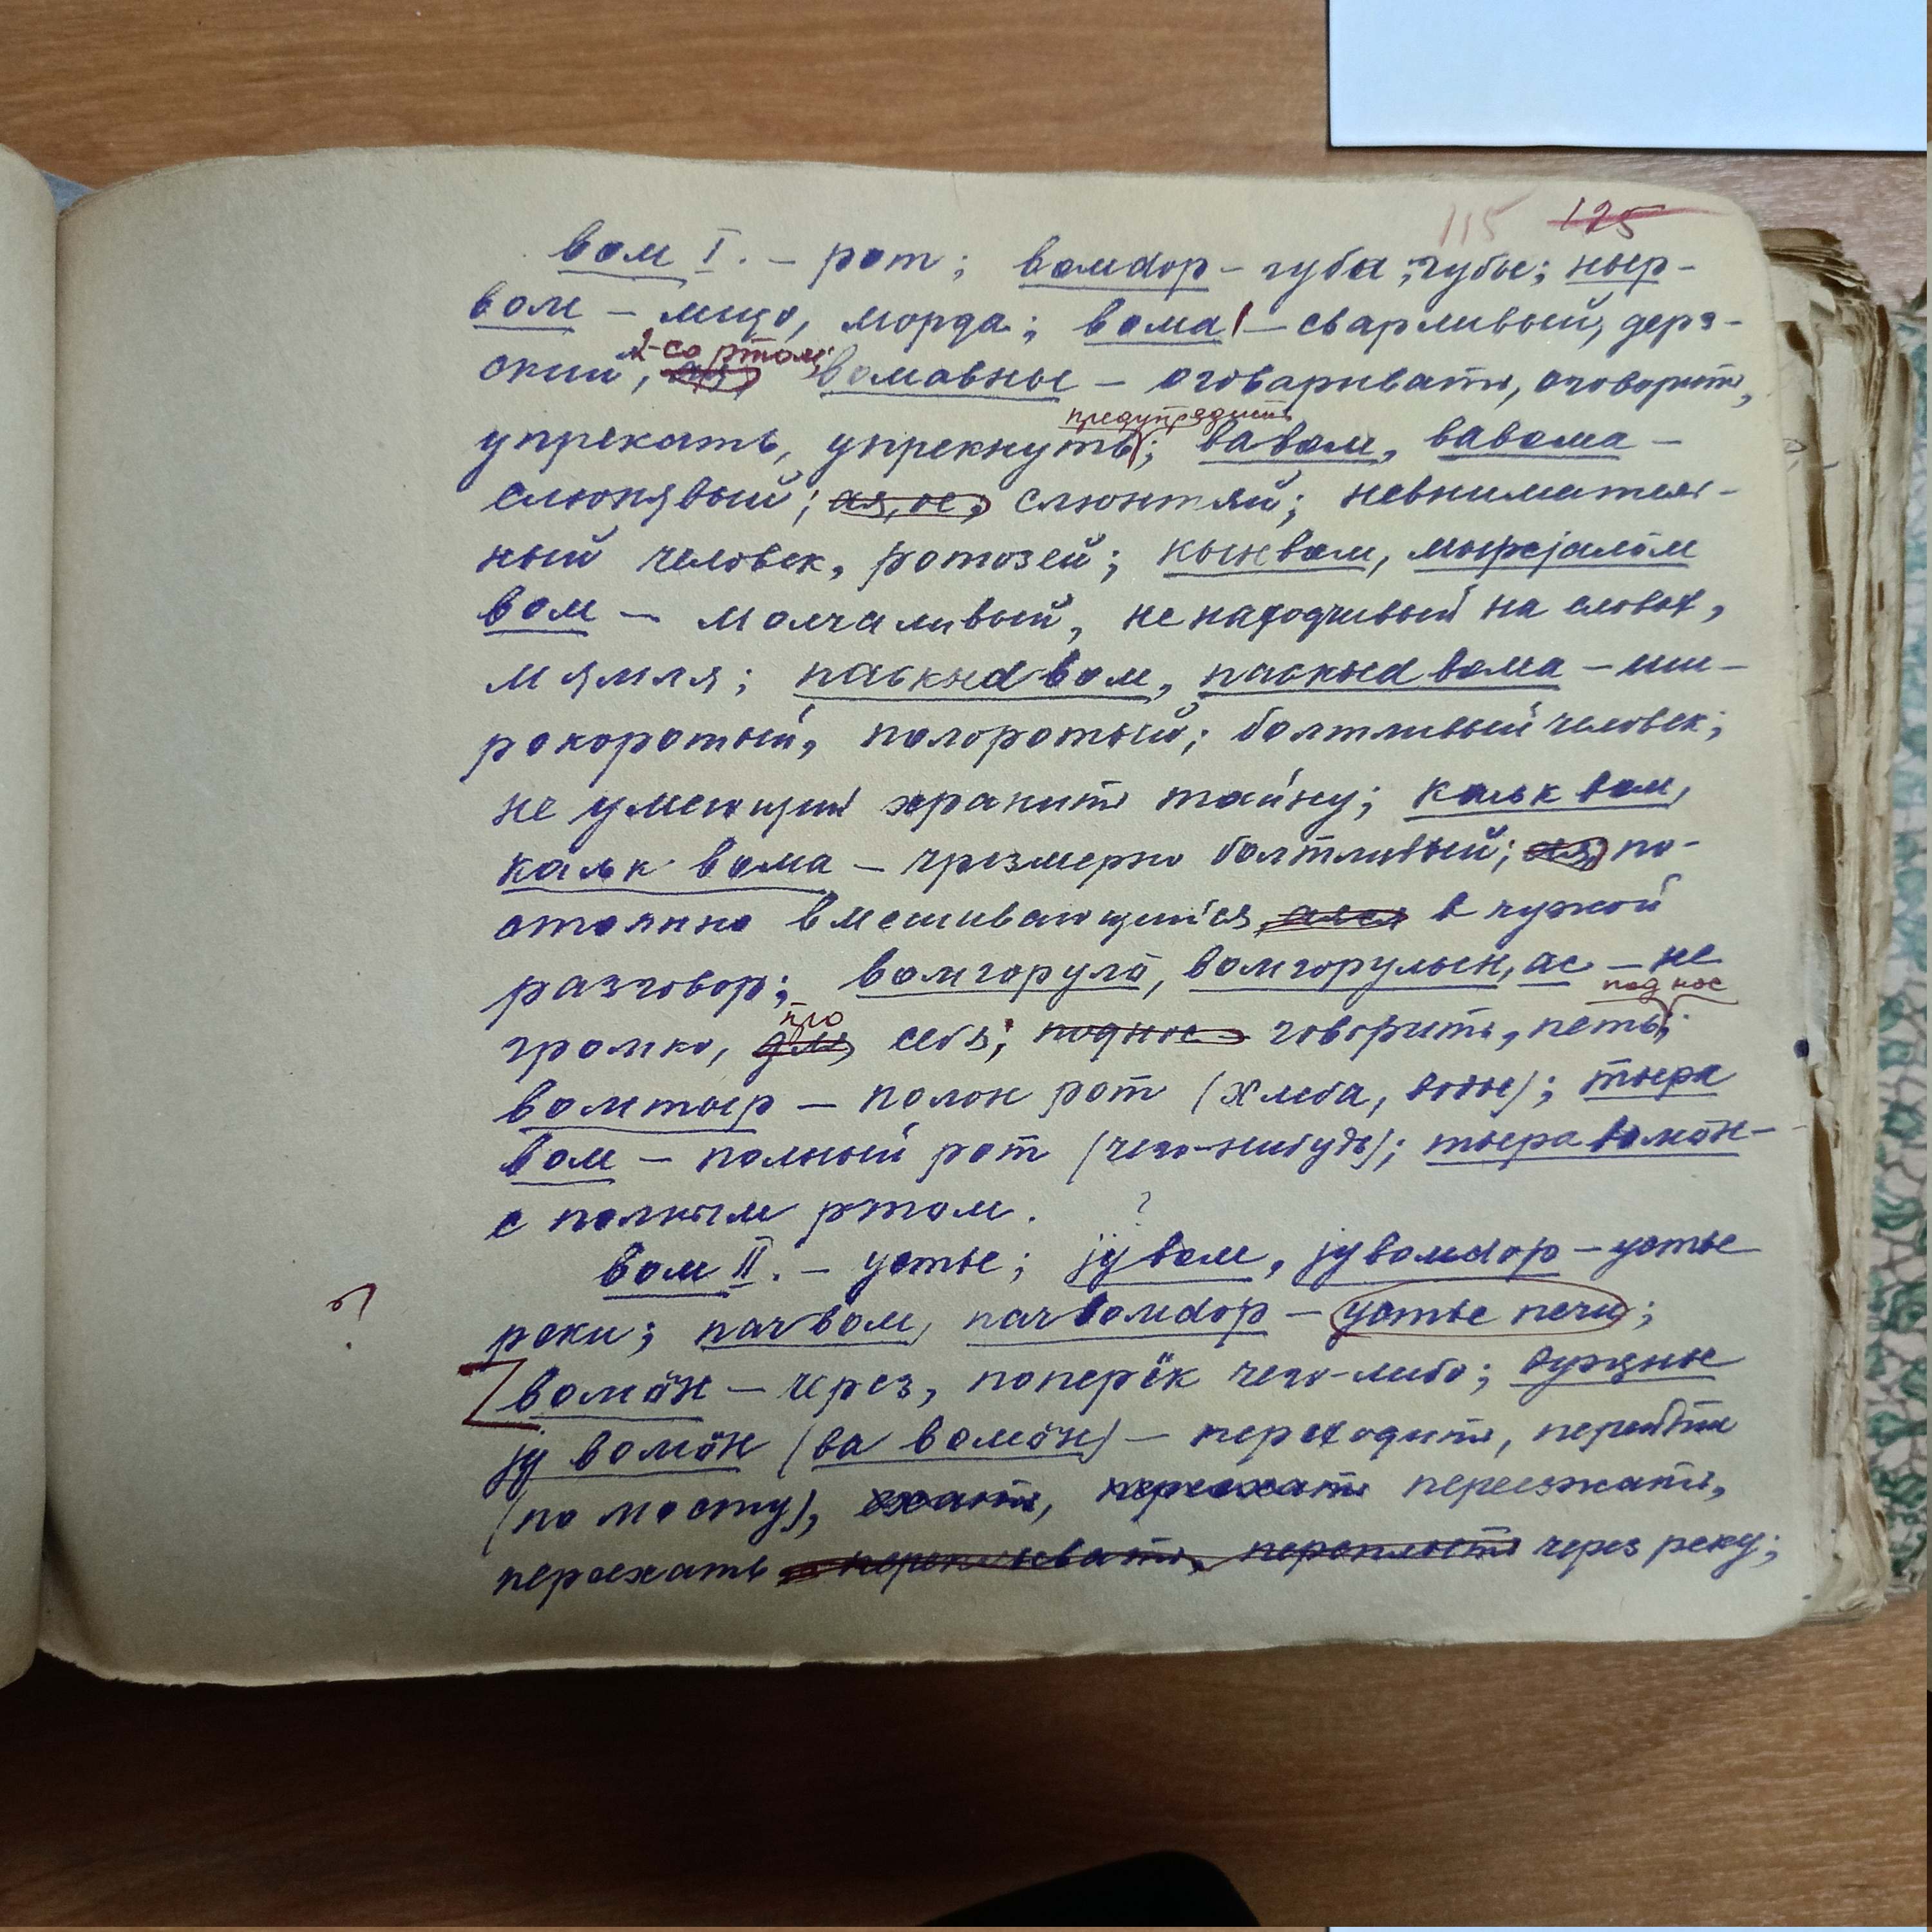 115 125
вом I. – рот; вомdор – губа; губы; ныр-
вом – лицо, морда; вома 1 – сварливый, дерз-
2 – со ртом;
ский, ая, вомавны – оговаривать, оговорить,
предупредить
упрекать, упрекнуть; вавом, вавома –
слюнявый; ая, ое, слюнтяй; невниматель-
ный человек, ротозей; кынвом, мырсјалӧм
вом – молчаливый, не находчивый на словах,
мямля; паськыd вом, паськыd вома – ши-
рокоротый, полоротый; болтливый человек;
не умеющий хранить тайну; кальк вом,
кальк вома – чрезмерно болтливый; ая, по-
стоянно вмешивающийся, аяся в чужой
разговор; вомгорулӧ, вомгорулын, ас – не
про под нос
громко, для себя; под нос говорить, петь;
вомтыр – полон рот (хлеба, воды); тыра
вом – полный рот (чего-нибудь); тыра вомӧн –
с полным ртом. ?
вом II. – устье; јувом, јувомdор – устье
реки; пачвом, пачвомdор – устье печи;
?
вомӧн – через, поперёк чего-либо; вуҗны
ју вомӧн (ва вомӧн) – переходить, перейти
(по мосту), ехать, переехать переезжать,
переехать переплыть через реку;